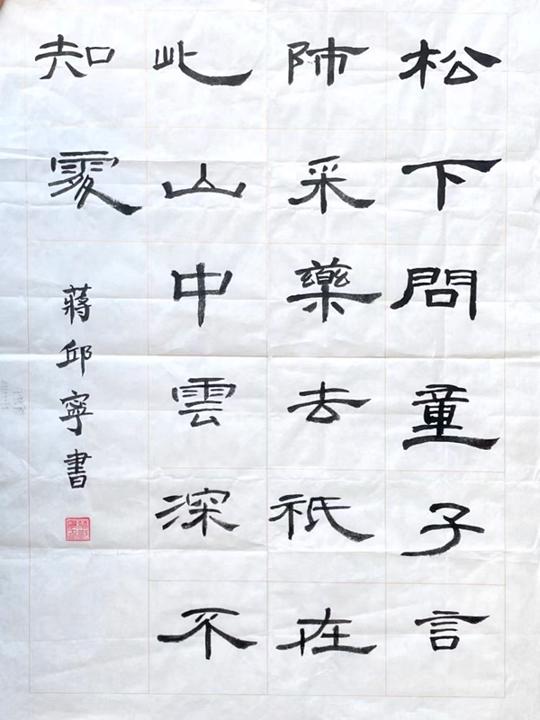 松下問童子言
師采藥去祇在
此山中雲深不
知處
蔣邱寧書